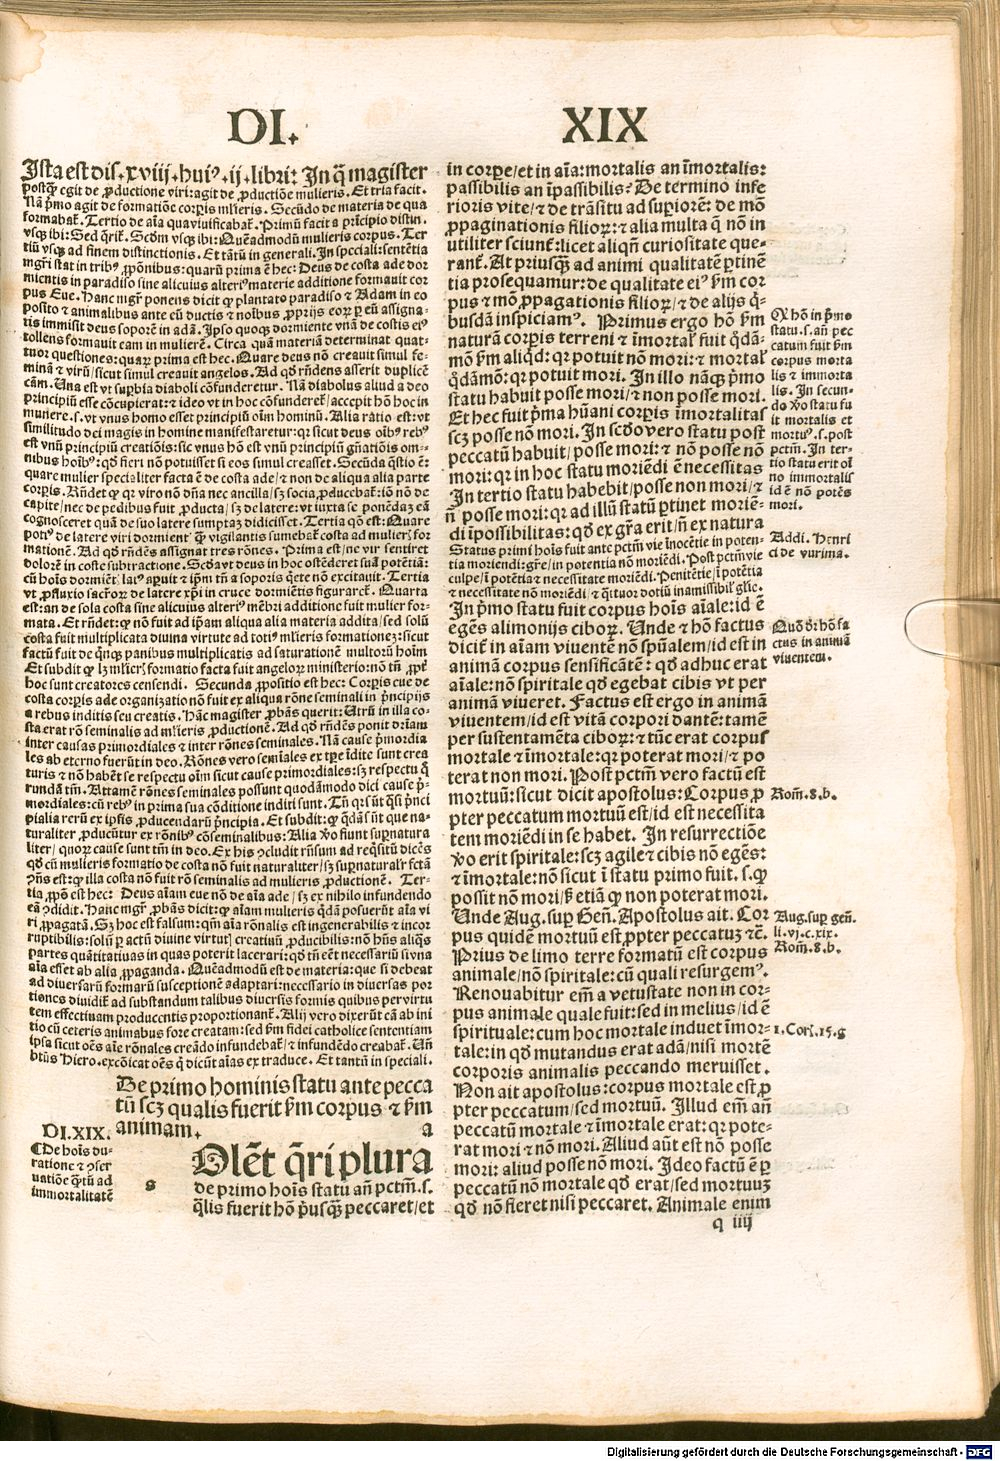 DI. XIX
Ista est dis. xviij. huiꝰ. ij. libri: In q̃ magister
postq̃ egit de ꝓductione viri: agit de ꝓductiõe mulieris. Et tria facit.
Nã pͥmo agit de formatiõe corꝑis mlieris. Secũdo de materia de qua
formabat̃. Tertio de aĩa qua viuificabat̃. Primũ facit a prĩcipio distin.
vsq̃ ibi: Sed q̃rit̃. Scd̃m vsq̃ ibi: Quẽadmodũ mulieris corpus. Ter
tiũ vsq̃ ad finem distinctionis. Et tãtũ in generali. In speciali: sentẽtia
mgr̃i stat in tribꝰ ꝓpõnibus: quarũ prima ẽ hec: Deus de costa ade dor
mientis in paradiso sine alicuius alteriꝰ materie additione formauit cor
pus Eue. Hanc mgr̃ ponens dicit ꝙ plantato paradiso ⁊ Adam in eo
posito ⁊ animalibus ante eũ ductis ⁊ noĩbus ꝓprijs eoꝝ ꝑ eũ assigna-
tis immisit deus soporẽ in adã. Ipso quoqꝫ dormiente vnã de costis eiꝰ
tollens formauit eam in mulierẽ. Circa quã materiã determinat quat-
tuor questiones: quaꝝ prima est hec. Quare deus nõ creauit simul fe-
minã ⁊ virũ/sicut simul creauit angelos. Ad qđ rñdens asserit duplicẽ
cãm. Una est vt suꝑbia diaboli cõfunderetur. Nã diabolus aliud a deo
principiũ esse cõcupierat: ⁊ ideo vt in hoc cõfunderet̃/accepit hõ hoc in
munere. s. vt vnus homo esset principiũ oĩm hominũ. Alia ratio est: vt
similitudo dei magis in homine manifestaretur: qꝛ sicut deus oĩbꝰ rebꝰ
est vnũ principiũ creatiõis: sic vnus hõ est vnũ principiũ gñatiõis om-
nibus hoĩbꝰ: qđ fieri nõ potuisset si eos simul creasset. Secũda q̃stio ẽ:
quare mulier specialiter facta ẽ de costa ade/⁊ non de aliqua alia parte
corꝑis. Rñdet ꝙ qꝛ viro nõ dña nec ancilla/sꝫ socia ꝓducebat̃: iõ nõ de
capite/nec de pedibus fuit ꝓducta/sꝫ de latere: vt iuxta se ponẽdaꝫ eã
cognosceret quã de suo latere sumptaꝫ didicisset. Tertia qõ est: Quare
potiꝰ de latere viri dormientis q̃ vigilantis sumebat̃ costa ad mulieris for
mationẽ. Ad qđ rñdẽs assignat tres rõnes. Prima est/ne vir sentiret
dolorẽ in coste subtractione. Scđa vt deus in hoc ostẽderet suã potẽtiã:
cũ hoĩs dormiẽtis latꝰ aꝑuit ⁊ ipm̃ tñ a soporis q̃ete nõ excitauit. Tertia
vt ꝓfluxio sacroꝝ de latere xp̃i in cruce dormiẽtis figuraret̃. Quarta
est: an de sola costa sine alicuius alteriꝰ mẽbri additione fuit mulier for-
mata. Et rñdet: ꝙ nõ fuit ad ip̃am aliqua alia materia addita/sed solũ
costa fuit multiplicata diuina virtute ad totiꝰ mlieris formationeꝫ: sicut
factũ fuit de q̃nqꝫ panibus multiplicatis ad saturationẽ multoꝝ hoĩm
Et subdit ꝙ lꝫ mulieris formatio facta fuit angeloꝝ ministerio: nõ tñ ꝓpt̃
hoc sunt creatores censendi. Secunda ꝓpositio est hec: Corꝑis eue de
costa corꝑis ade organizatio nõ fuit ex aliqua rõne seminali in pͥncipijs
a rebus inditis seu creatis. Hãc magister ꝓbãs querit: Utrũ in illa co-
sta erat rõ seminalis ad mlieris ꝓductionẽ. Ad qđ rñdẽs ponit dr̃iam
inter causas primordiales ⁊ inter rõnes seminales. Nã cause pͥmordia
les ab eterno fuerũt in deo. Rõnes vero semĩales ex tꝑe ĩdite sunt crea
turis ⁊ nõ habẽt se respectu oĩm sicut cause primordiales: sꝫ respectu q̃
rundã tm̃. Attamẽ rõnes seminales possunt quodãmodo dici cause pͥ-
mordiales: cũ rebꝰ in prima sua cõditione inditi sunt. Tñ qꝛ sũt q̃si pͥnci
pialia rerũ ex ipsis ꝓducendarũ pͥncipia. Et subdit: ꝙ q̃dã sũt que na-
turaliter ꝓducũtur ex rõnibꝰ cõseminalibus: Alia ꝟo fiunt suꝑnatura
liter/quoꝝ cause sunt tm̃ in deo. Ex his ꝯcludit rñsum ad req̃sitũ dicẽs
qđ cũ mulieris formatio de costa nõ fuit naturaliter/sꝫ suꝑnatural̃r fctã
ꝯñs est: ꝙ illa costa nõ fuit rõ seminalis ad mulieris ꝓductionẽ. Ter-
tia ꝓpõ est hec: Deus aĩam eue nõ de aĩa ade/sꝫ ex nihilo infundendo
eã ꝯdidit. Hanc mgr̃ ꝓbãs dicit: ꝙ aĩam mulieris q̃dã posuerũt aĩa vi
ri ꝓpagatã. Sꝫ hoc est falsum: qm̃ aĩa rõnalis est ingenerabilis ⁊ incor
ruptibilis: solũ ꝑ actũ diuine virtutis creatiuũ ꝓducibilis: nõ hñs aliq̃s
partes quãtitatiuas in quas poterit lacerari: qđ tñ eẽt necessariũ si vna
aĩa esset ab alia ꝓpaganda. Quẽadmodũ est de materia: que si debeat
ad diuersarũ formarũ susceptionẽ adaptari: necessario in diuersas por
tiones diuidit̃ ad substandum talibus diuersis formis quibus per virtu
tem effectiuam producentis proportionant̃. Alij vero dixerũt eã ab ini
tio cũ ceteris animabus fore creatam: sed ẜm fidei catholice sententiam
ipsa sicut oẽs aĩe rõnales creãdo infundebat̃/⁊ infundẽdo creabat̃. Uñ
btũs Hiero. excõicat oẽs q̃ dicũt aĩas ex traduce. Et tantũ in speciali.
De primo hominis statu ante pecca
tũ scꝫ qualis fuerit ẜm corpus ⁊ ẜm
animam. a
DI. XIX.
¶De hoĩs du-
ratione ⁊ ꝯser
uatiõe q̃tũ ad
immortalitatẽ
s
Olẽt q̃ri plura
de primo hoĩs statu añ pctm̃. s.
q̃lis fuerit hõ pͥusq̃ꝫ peccaret/et
in corpe/et in aĩa: mortalis an ĩmortalis:
passibilis an ĩpassibilis? De termino infe
rioris vite/⁊ de trãsitu ad suꝑiorẽ: de mõ
ꝓpaginationis filioꝝ: ⁊ alia multa q̃ nõ in
utiliter sciunt̃: licet aliqñ curiositate que-
rant̃. At priusq̃ꝫ ad animi qualitatẽ ꝑtinẽ
tia prosequamur: de qualitate eiꝰ ẜm cor
pus ⁊ mõ ꝓpagationis filioꝝ/⁊ de alijs q̃-
busdã inspiciamꝰ. Primus ergo hõ ẜm
naturã corꝑis terreni ⁊ ĩmortal̃ fuit q̃dã-
mõ ẜm aliqđ: qꝛ potuit nõ mori: ⁊ mortal̃
q̃dãmõ: qꝛ potuit mori. In illo nãqꝫ pͥmo
statu habuit posse mori/⁊ non posse mori.
Et hec fuit pͥma hũani corꝑis ĩmortalitas
scꝫ posse nõ mori. In scđo vero statu post
peccatũ habuit/posse mori: ⁊ nõ posse nõ
mori: qꝛ in hoc statu moriẽdi ẽ necessitas
In tertio statu habebit/posse non mori/⁊
ñ posse mori: qꝛ ad illũ statũ ꝑtinet moriẽ-
di ĩpossibilitas: qđ ex gr̃a erit/ñ ex natura
Status primi hoĩs fuit ante pctm̃ vie ĩnocẽtie in poten-
tia moriendi: gr̃e/in potentia nõ moriẽdi. Post pctm̃ vie
culpe/ĩ potẽtia ⁊ necessitate moriẽdi. Penitẽtie/ĩ potẽtia
⁊ necessitate nõ moriẽdi/⁊ q̃tuor dotiũ inamissibil̃ gl̃ie.
In pͥmo statu fuit corpus hoĩs aĩale: id ẽ
egẽs alimonijs ciboꝝ. Unde ⁊ hõ factus
dicit̃ in aĩam viuentẽ nõ spũalem/id est in
animã corpus sensificãtẽ: qđ adhuc erat
aĩale: nõ spiritale qđ egebat cibis vt per
animã viueret. Factus est ergo in animã
viuentem/id est vitã corpori dantẽ: tamẽ
per sustentamẽta ciboꝝ: ⁊ tũc erat corpus
mortale ⁊ ĩmortale: qꝛ poterat mori/⁊ po
terat non mori. Post pctm̃ vero factũ est
mortuũ: sicut dicit apostolus: Corpus ꝓ
pter peccatum mortuũ est/id est necessita
tem moriẽdi in se habet. In resurrectiõe
ꝟo erit spiritale: scꝫ agile ⁊ cibis nõ egẽs:
⁊ ĩmortale: nõ sicut ĩ statu primo fuit. s. ꝙ
possit nõ mori/sꝫ etiã ꝙ non poterat mori.
Unde Aug. suꝑ Geñ. Apostolus ait. Cor
pus quidẽ mortuũ est ꝓpter peccatuꝫ ⁊c̃.
Prius de limo terre formatũ est corpus
animale/nõ spiritale: cũ quali resurgemꝰ.
Renouabitur em̃ a vetustate non in cor-
pus animale quale fuit: sed in melius/id ẽ
spirituale: cum hoc mortale induet ĩmor-
tale: in qđ mutandus erat adã/nisi mortẽ
corporis animalis peccando meruisset.
Non ait apostolus: corpus mortale est ꝓ
pter peccatum/sed mortuũ. Illud em̃ añ
peccatũ mortale ⁊ ĩmortale erat: qꝛ pote-
rat mori ⁊ nõ mori. Aliud aũt est nõ posse
mori: aliud posse nõ mori. Ideo factũ ẽ ꝑ
peccatũ nõ mortale qđ erat/sed mortuuꝫ
qđ nõ fieret nisi peccaret. Animale enim
q iiij
Ꝙ hõ in pͥmo
statu. s. añ pec
catum fuit ẜm
corpus morta
lis ⁊ immorta
lis. In secun-
do ꝟo statu fu
it mortalis et
mortuꝰ. s. post
pctm̃. In ter-
tio statu erit oĩ
no immortalis
id ẽ nõ potẽs
mori.
Addi. Henri
ci de vurima.
Quõ dr̃ hõ fa
ctus in animã
viuentem.
Rom̃. 8. b.
Aug. suꝑ geñ.
li. vj. c. xix.
Rom̃. 8. b.
1. Corꝭ. 15. g
Digitalisierung gefördert durch die Deutsche Forschungsgemeinschaft - DFG